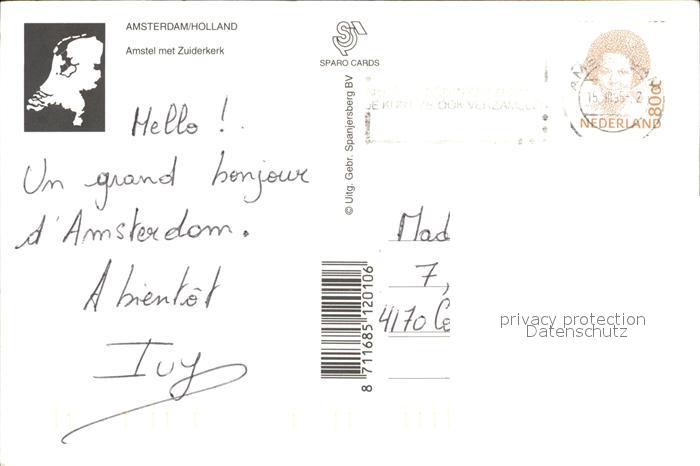 AMSTERDAM/HOLLAND
Amstel met Zuiderkerk
SPARO CARDS
© Uitg. Gebr. Spanjersberg BV
8 711685 120106
JE KUNT ZE OOK VERZAMELEN
80c
NEDERLAND
Hello !
Un grand bonjour
d'Amsterdam.
A bientôt
Ivy
Mad
7,
4170 Ce
privacy protection
Datenschutz